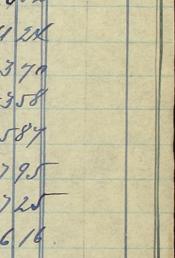 370
358
587
795
725
616